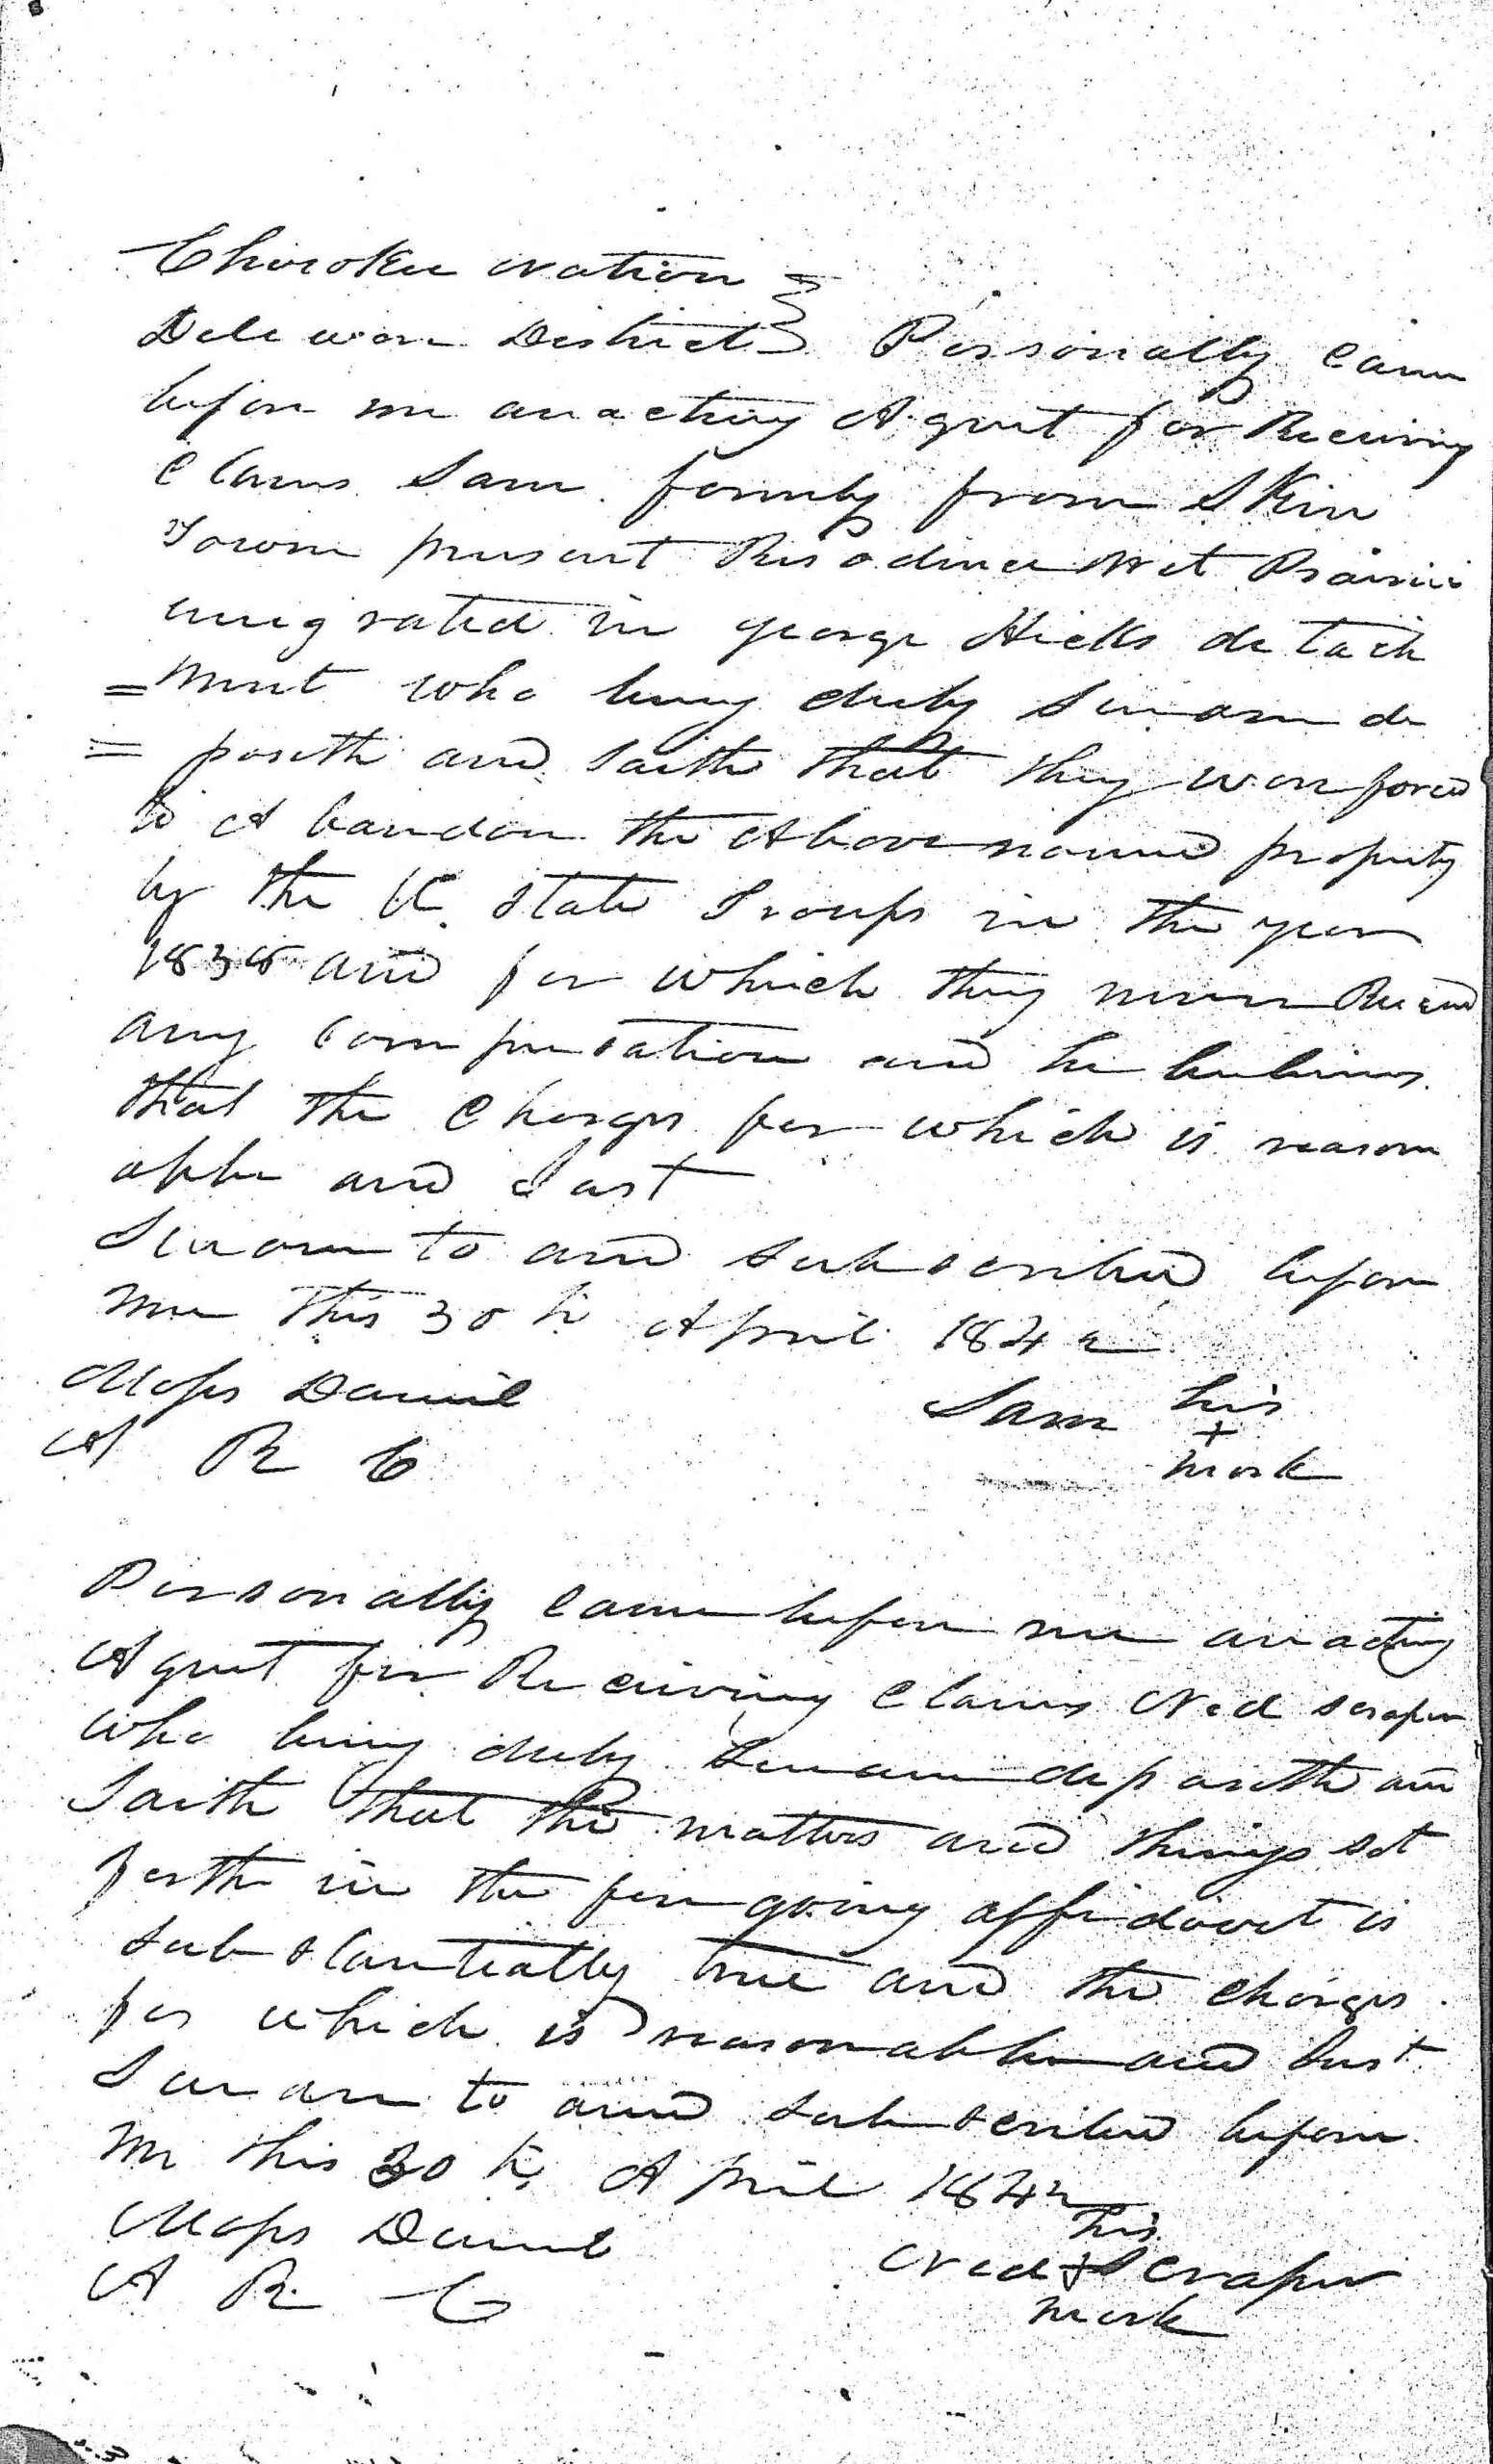 Cherokee Nation }
Delawar District } Personally came
before me an acting Agent for Receiving
Claims Sam formly from Skin
Town present Residince Wet Prairie
emigrated in george Hicks detach
=ment who being duly Sworn de
=poseth and Saith that they wer forced
to Abandon the Above named property
by the U. State Troops in the year
1838 and for which they never Received
any compensation and he believes
that the charges for which is reason
able and Just
Sworn to and Subscribed before
me this 30th April 1842
Moses Daniel Sam his
A R C +
mark
Personally came before me an acting
Agent for Receiving claims Ned Scraper
who being duly Sworn deposeth and
Saith that the matters and things set
forth in the foregoing affidavit is
substantially true and the charges
for which is reasonable and Just
Sworn to and Subscribed before
me this 30th April 1842
his
Moses Daniel Ned + Scraper
A R C mark